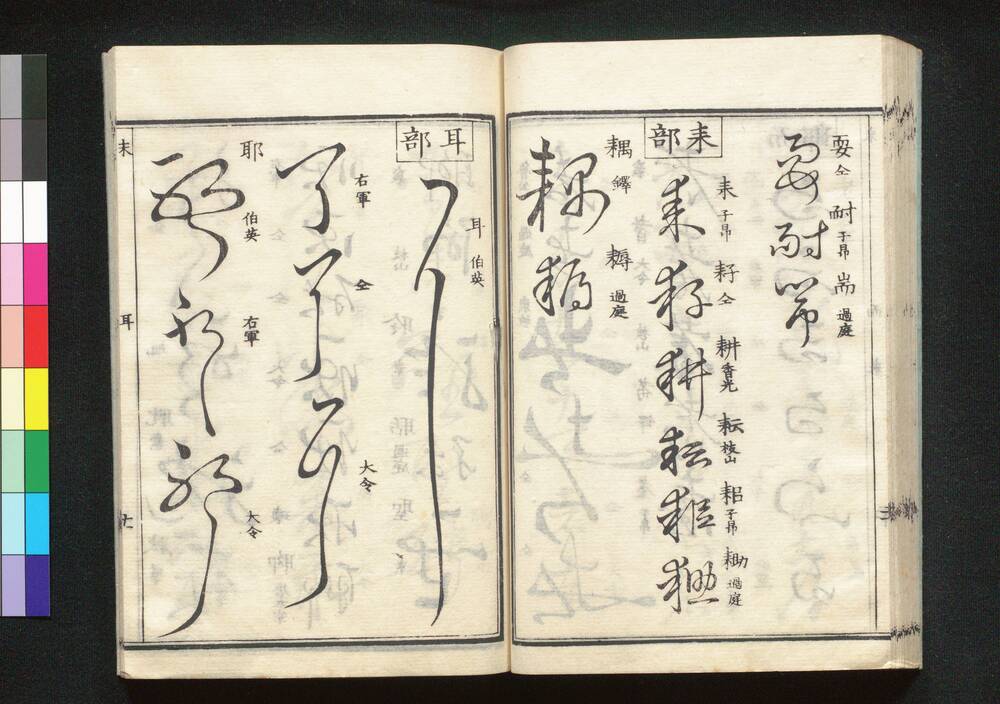 耎 仝 耐 子昂 耑 過庭
耒部
耒 子昂 耔 仝 耕 香光 耘 枝山 耜 子昂 耡 過庭
耦 鐸 耨 過庭
耳部
耳 伯英
右軍 仝 大令
耶 伯英 右軍 大令
耒 耳